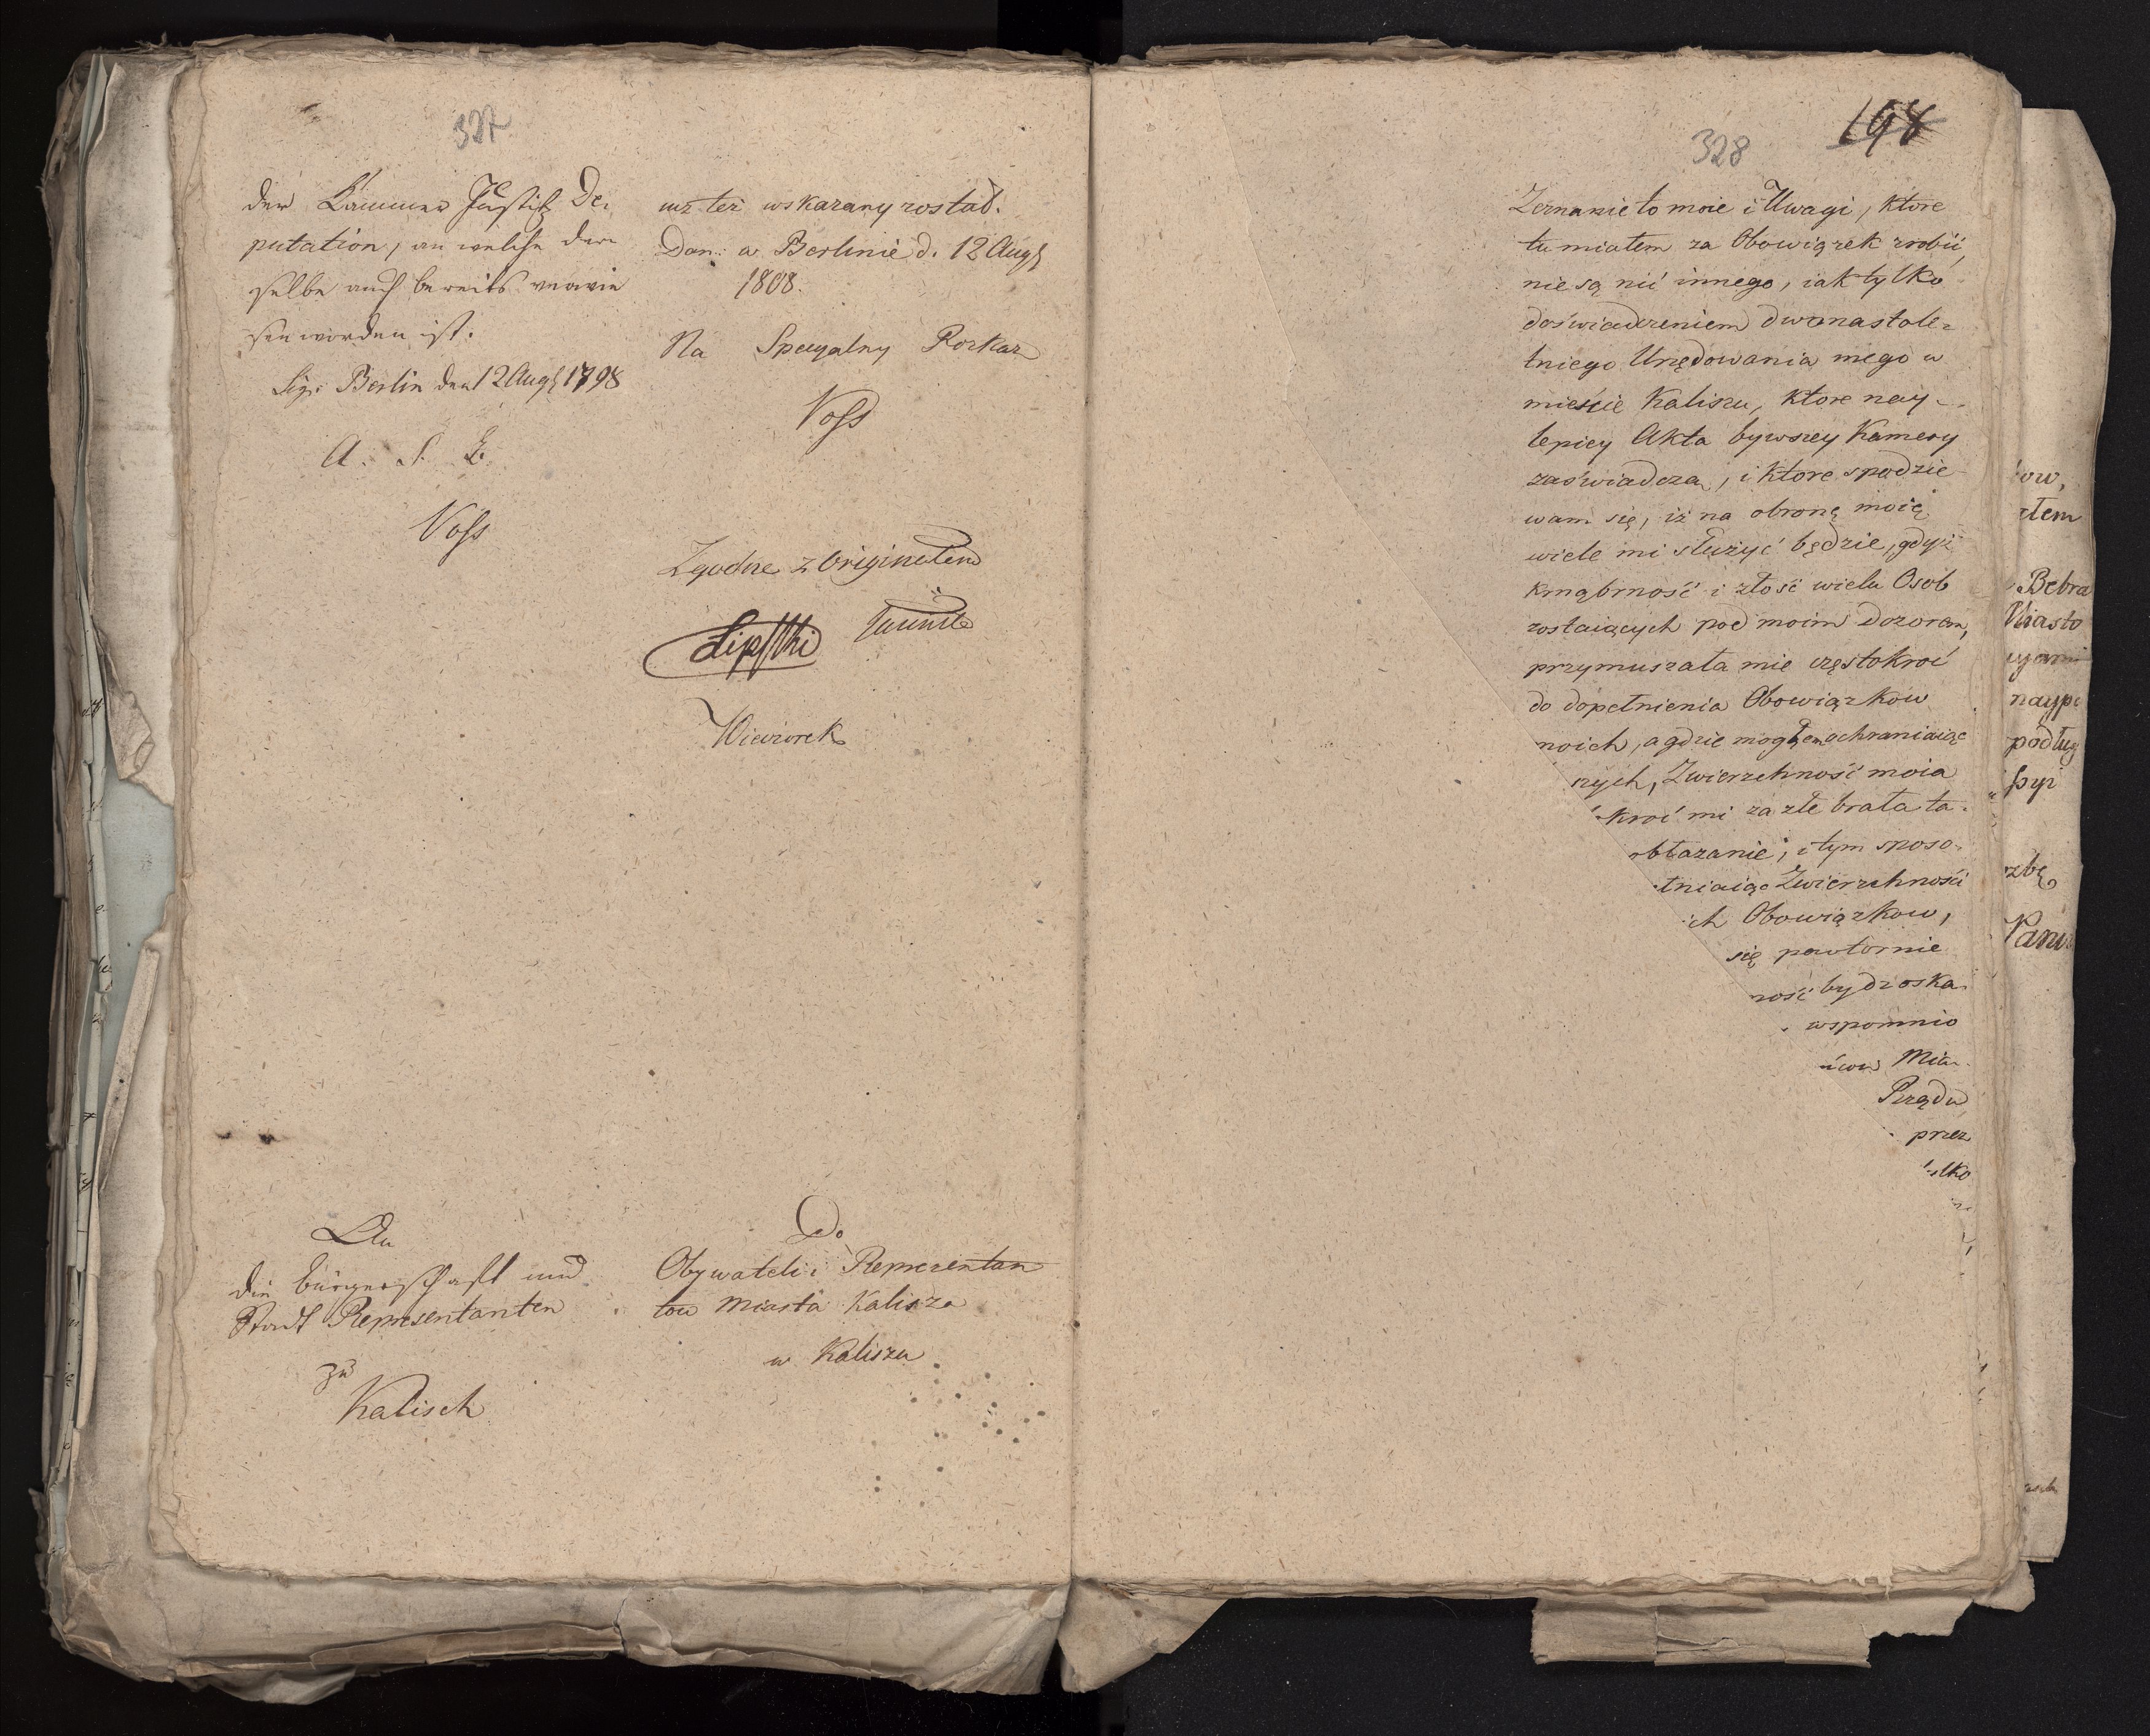 327
der Kammer Justitz De,
putation, an welche der,
selbe auch bereits verwie
sen worden ist.
Sig. Berlin den 12 Aug 1798
A. S. B.
Voss
An
die Bürgerschaft und
Stadt Repræsentanten
zu
Kalisch
iuz też wskazany został.
Dan: w Berlinie d. 12 Aug
1808.
Na Specyalny Rozkaz
Voss
Zgodne z Originałem
Lipski
Wieczorek
Do
Obywateli i Reprezentan
tow Miasta Kalisza
w Kaliszu
328
198
Zeznanie to moie i Uwagi, ktore
tu miałem za Obowiązek zrobić,
nie są nić innego, iak tylko
doświadczeniem dwonastole-
tniego Urzędowania mego w
mieście Kaliszu, ktore nay-
lepiey Akta bywszey Kamery
zaświadczą, i ktore spodzie
wam się, iż na obronę moię
wiele mi służyć będzie, gdyż
krnąbrność i złość wielu Osob
zostaiących pod moim Dozorem,
przymuszała mie częstokroć
do dopełnienia Obowiązkow
moich, a gdzie mogłem ochraniaiąc
nych, Zwierzchność moia
kroć mi za złe brała ta-
obłazanie, i tym sposo-
łniaiąc Zwierzchności
ich Obowiązkow,
się powtornie
ność bydz oska-
wspomnio
ńcow Mia-
Rządu
przez
ylko
ow,
łem
Bebra
Miasto
naype
podług
spi
zbę
Panu